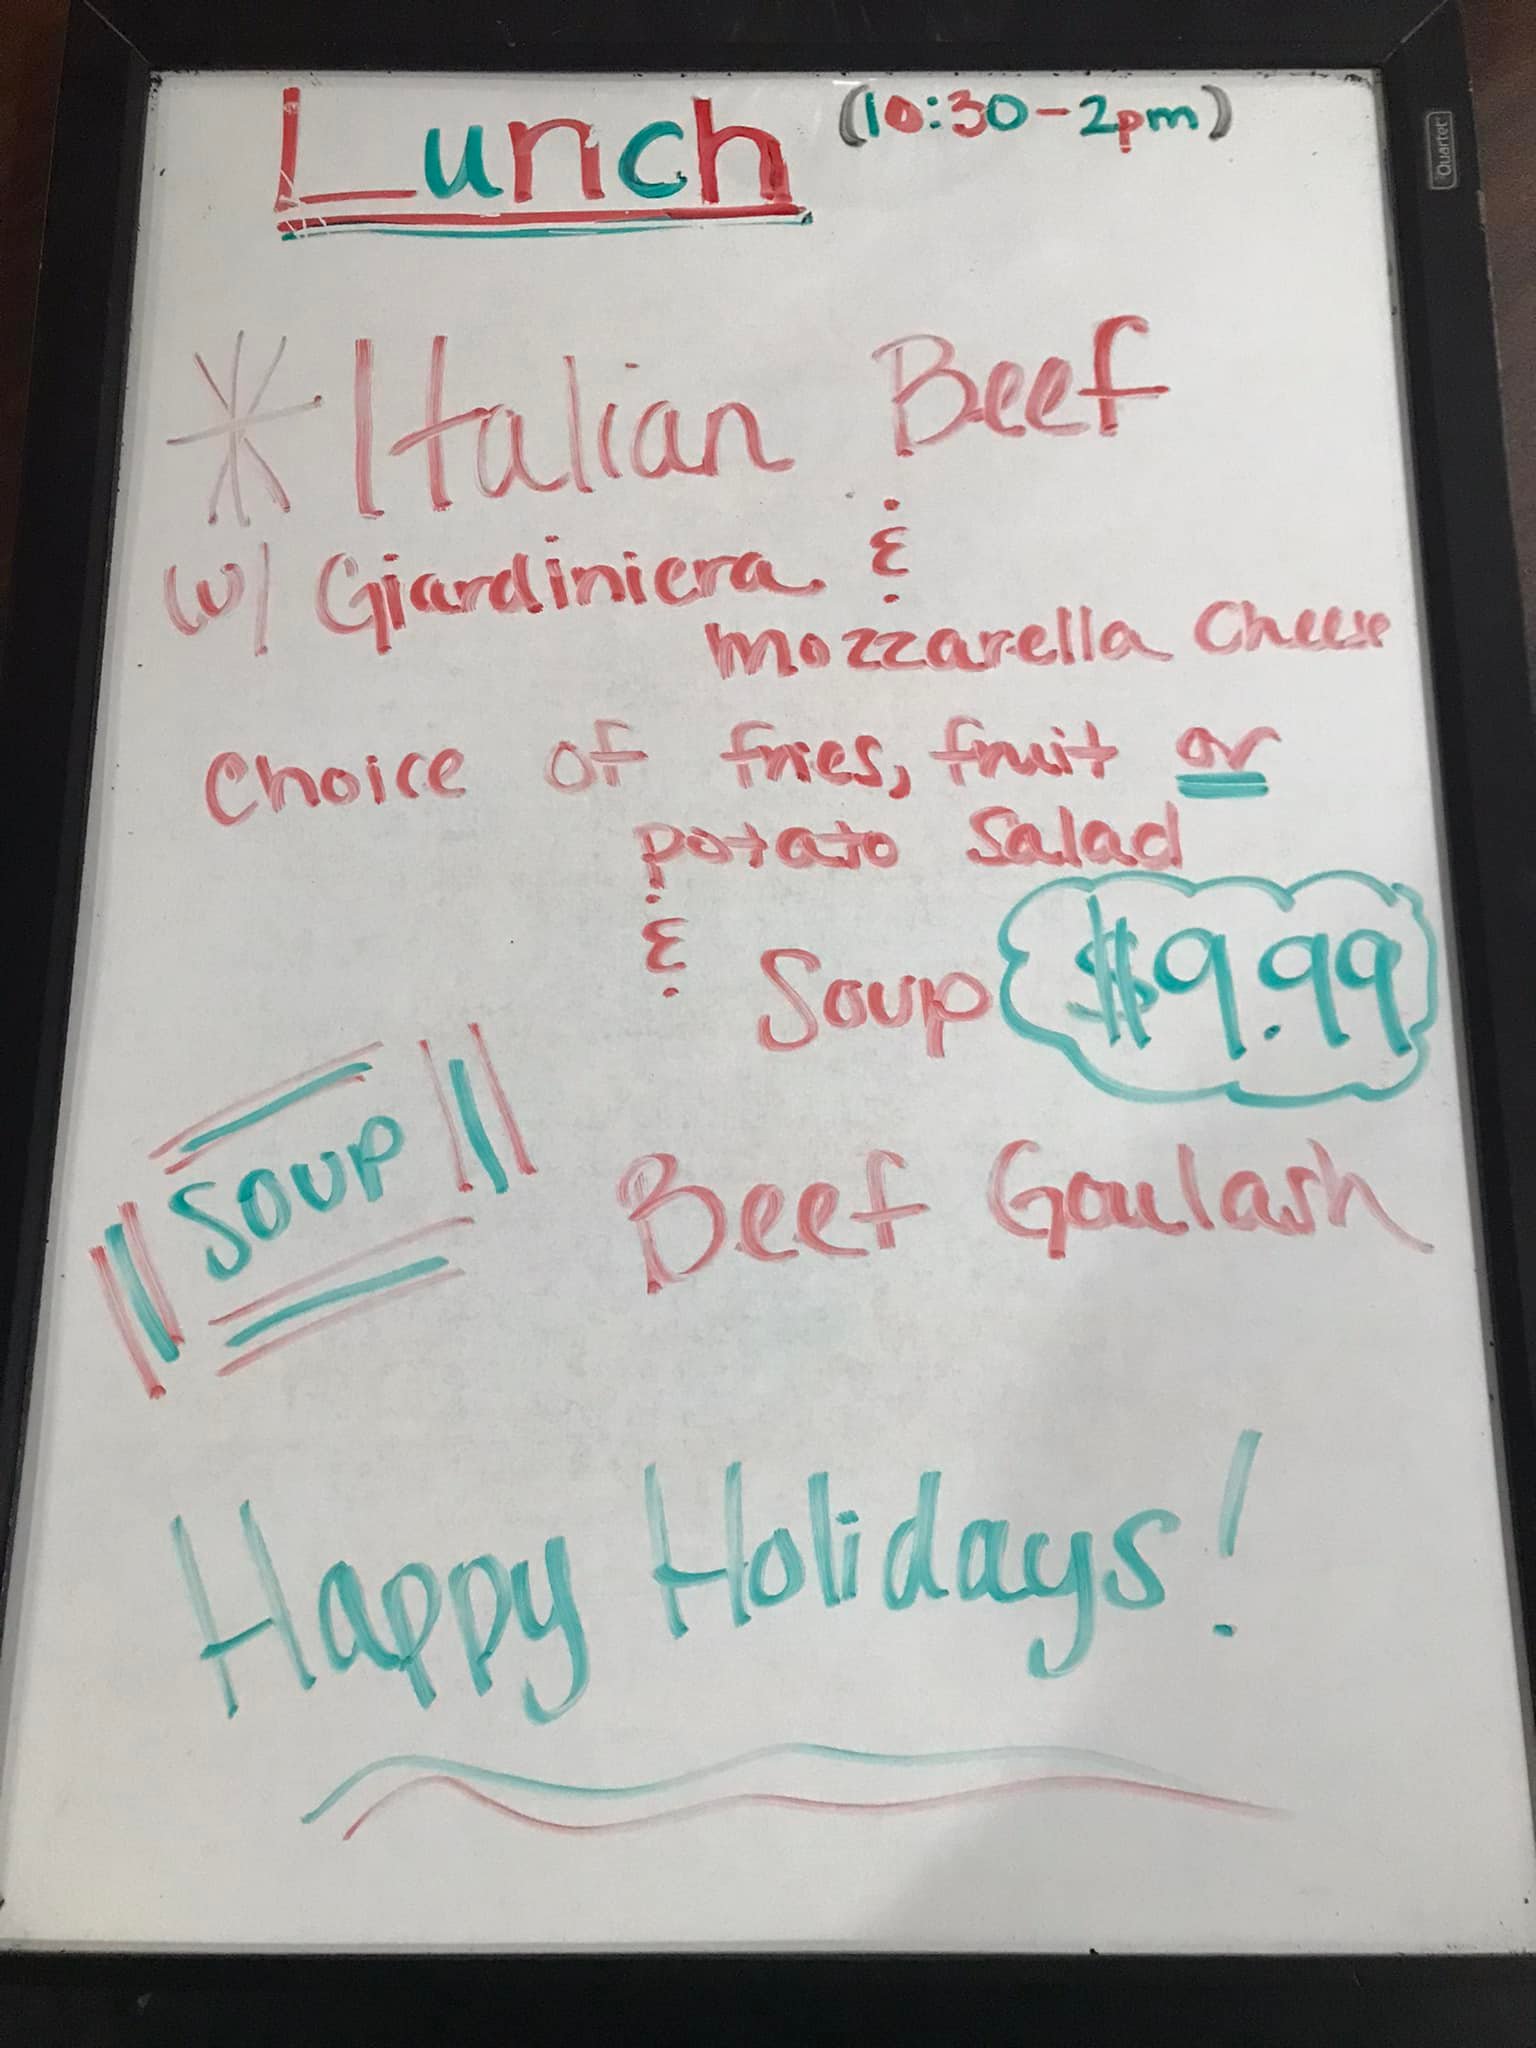 Lunch (10:30-2pm)
* Italian Beef
w/ Giardiniera &
mozzarella Cheese
Choice of fries, fruit or
potato Salad
& Soup $9.99
Soup Beef Goulash
Happy Holidays!
Quartet